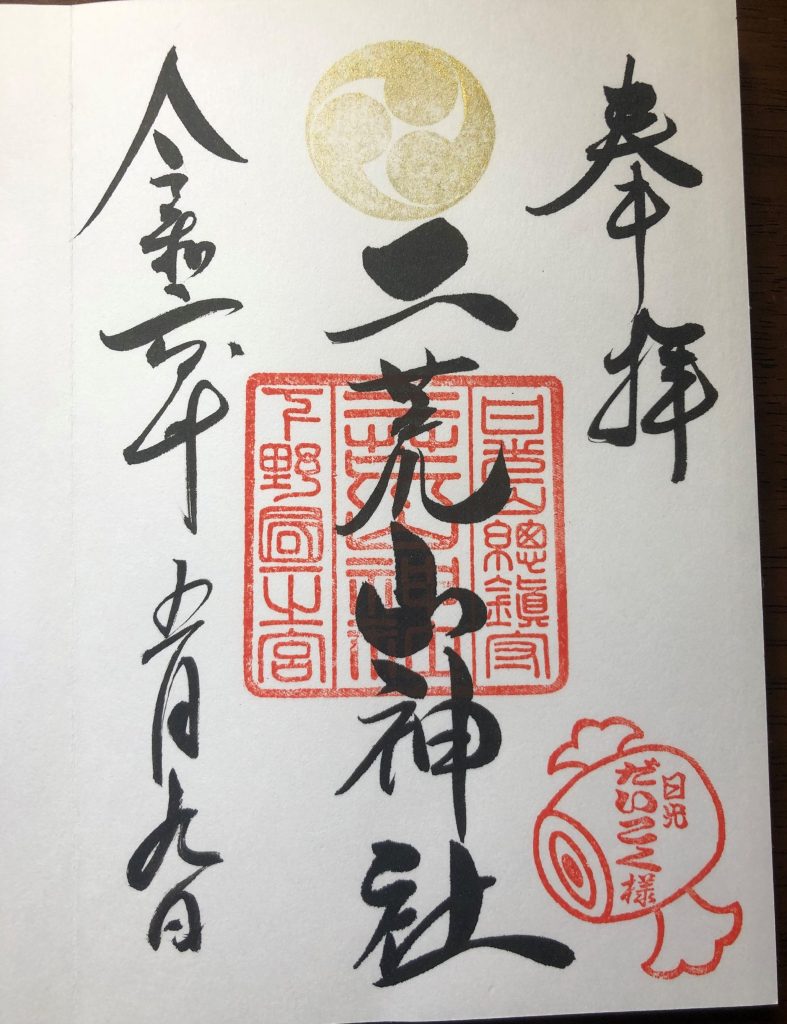 奉拝
二荒山神社
令和 年五月九日
日光山總鎮守
二荒山神社
下野國一之宮
日光
だいこく様